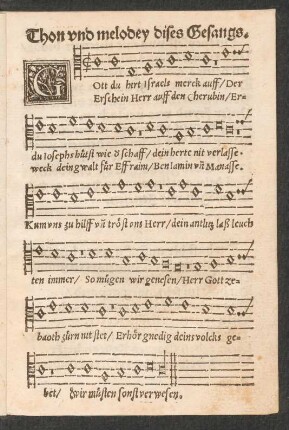 Thon vnd melodey dises Gesangs.
GOtt du hirt Israels merck auff/Der
Erschein Herr auff den Cherubin/Er-
du Iosephs hütst wie ð schaff/dein herte nit verlasse.
weck dein gwalt für Effraim/Beniamin vñ Manasse.
Kum vns zu hilff vñ tröst ons Herr/dein antlitz laß leuch
ten immer/ So mügen wir genesen/Herr Gott ze-
baoth zürn nit stet/ Erhör gnedig deins volcks ge-
bet/ Wir müsten sonst verwesen.